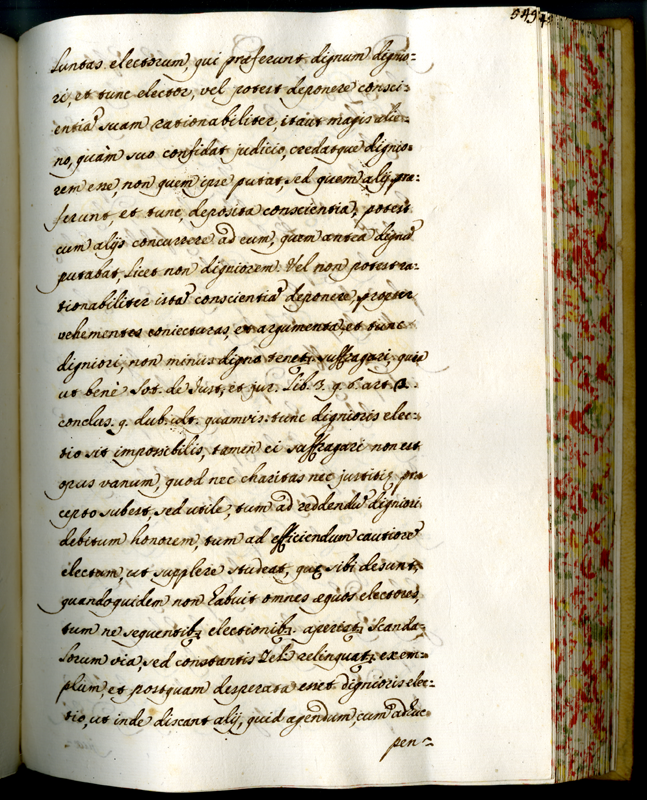 549
luntas electorum, qui præferunt dignum dignio=
ri, et tunc elector, vel potest deponere consci=
entiã suam rationabiliter, itaut magis alie=
no, quàm suo confidat judicio, credatque dignio=
rem esse, non quem ipse putat, sed quem alij præ=
ferunt, et tunc, deposita conscientia, potest
cum alijs concurrere ad eum, quem antea dignũ
putabat, licet non digniorem. Vel non potest ra=
tionabiliter istã conscientiã deponere, propter
vehementes coniecturas, et argumenta, et tunc
digniori, non minus digno tenet: suffragari, quia
ut benè Sot. de Just, et jur. Lib. 3. q. 6. art. 2.
conclus. 9. dub. ult. quamvis tunc dignioris elec=
tio sit imposibilis, tamen ei suffragari non est
opus vanum, quod nec charitas nec justitiæ præ
cepto subest, sed utile, tum ad reddendũ digniori
debitum honorem, tum ad efficiendum cautiorẽ
electum, ut supplere studeat, quæ sibi desunt,
quandoquidem non habuit omnes æquos electores,
tum ne sequentibꝫ electionibꝫ aperiat: scanda=
lorum via, sed constantis Zeli relinquat: exem=
plum, et postquam desperata esset dignioris elec=
tio, ut inde discant alij, quid agendum, cum adhuc
pen=